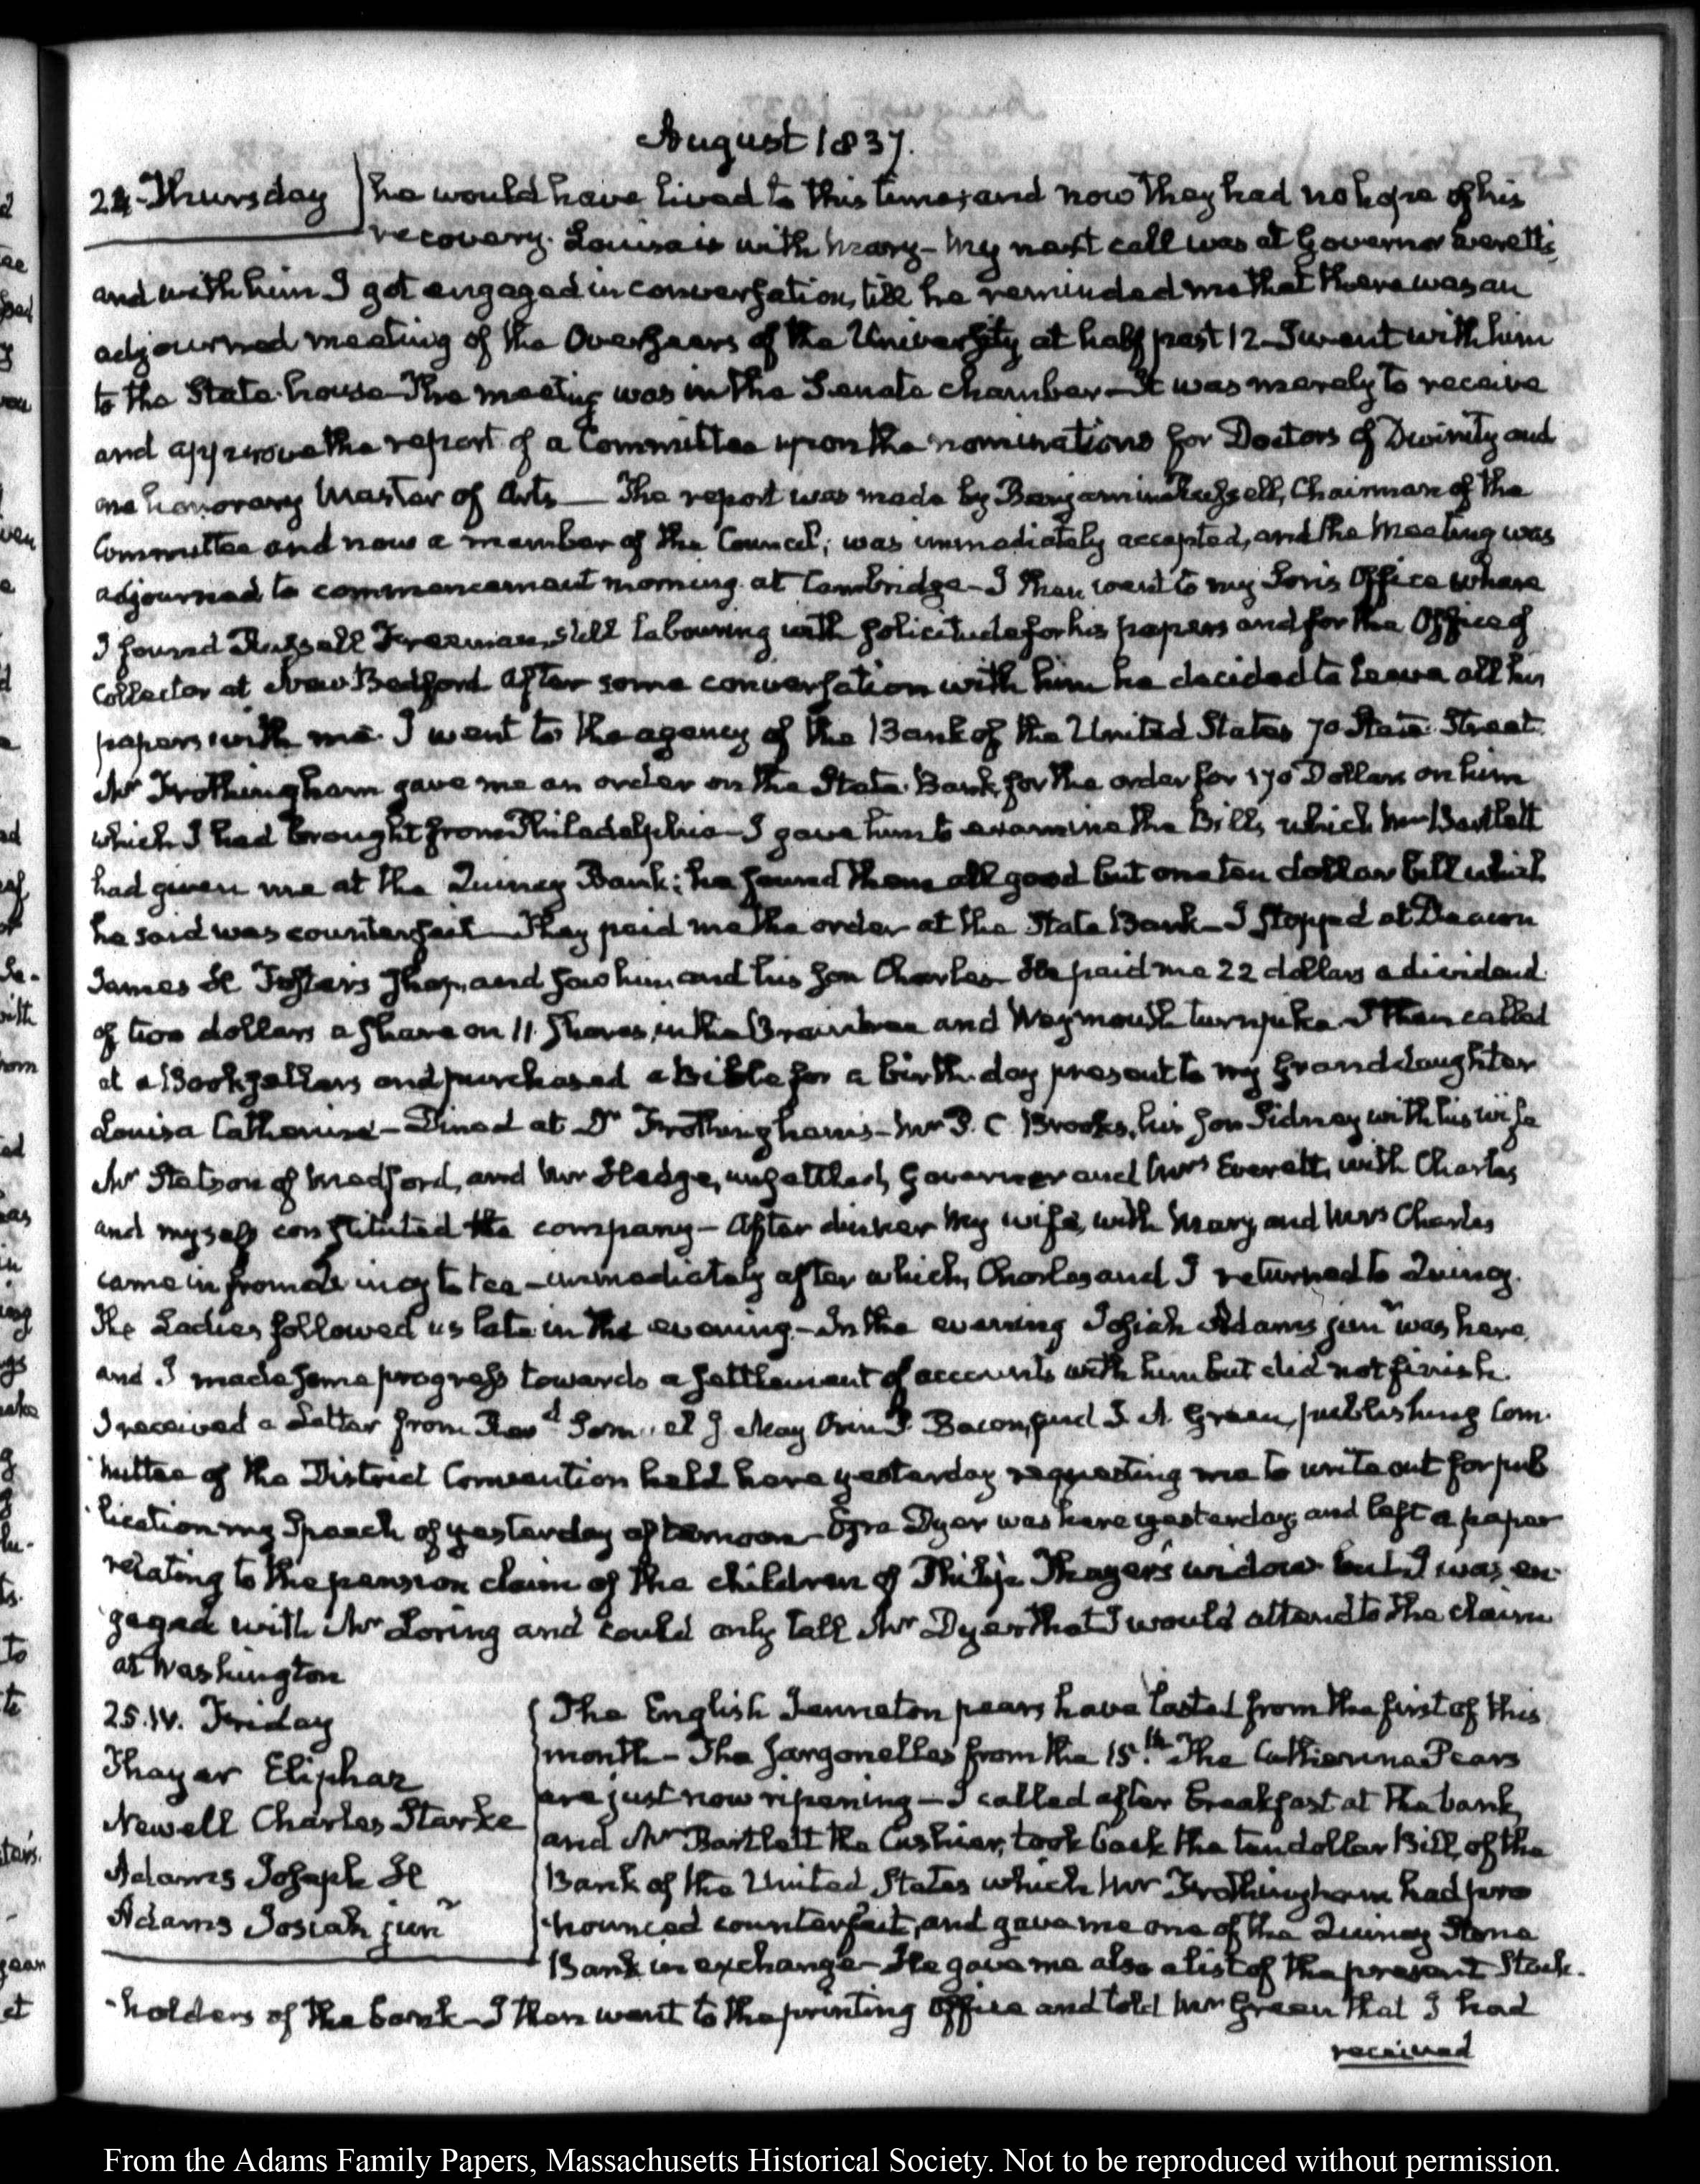 August 1837.
24. Thursday he would have lived to this time; and now they had no hope of his
recovery. Louisa is with Mary – My next call was at Governor Everett's,
and with him I got engaged in conversation, till he reminded me that there was an
adjourned meeting of the Overseers of the University at half past 12 – I went with him
to the State-house – The meeting was in the Senate chamber – It was merely to receive
and approve the report of a Committee upon the nominations for Doctors of Divinity and
one honorary Master of Arts — The report was made by Benjamin Russell, Chairman of the
Committee and now a member of the Council; was immediately accepted, and the Meeting was
adjourned to commencement morning at Cambridge – I then went to my Son's Office where
I found Russell Freeman, still labouring with solicitude for his papers and for the Office of
Collector at New Bedford. After some conversation with him he decided to leave all his
papers with me. I went to the agency of the Bank of the United States 70 State Street.
Mr Frothingham gave me an order on the State Bank, for the order for 170 Dollars on him
which I had brought from Philadelphia – I gave him to examine the Bills, which Mr Bartlett
had given me at the Quincy Bank; he found them all good but one ten dollar bill which
he said was counterfeit – They paid me the order at the State Bank – I stopped at Deacon
James H Foster's shop, and saw him and his son Charles – He paid me 22 dollars a dividend
of two dollars a share on 11 shares, in the Braintree and Weymouth turnpike – I then called
at a Bookseller's and purchased a Bible for a birth-day present to my Granddaughter
Louisa Catherine – Dined at Dr Frothingham's – Mr P. C Brooks, his son Sidney with his wife
Mr Stetson of Medford, and Mr Hedge, unsettled, Governor and Mrs Everett, with Charles
and myself constituted the company – After dinner my wife, with Mary, and Mrs Charles
came in from Quincy to tea – immediately after which, Charles and I returned to Quincy.
The Ladies followed us late in the evening – In the evening Josiah Adams junr was here,
and I made some progress towards a settlement of accounts with him but did not finish.
I received a Letter from Revd Samuel J. May Orin P. Bacon, and J. A. Green, publishing Com-
mittee of the District Convention held here yesterday requesting me to write out for pub
lication my Speach of yesterday afternoon – Ezra Dyer was here yesterday, and left a paper
relating to the pension claim of the children of Philip Thayer's widow but I was en-
gaged with Mr Loring and could only tell Mr Dyer that I would attend to the claim
at Washington
25. IV. Friday
Thayer Eliphaz
Newell Charles Starke
Adams Joseph H
Adams Josiah junr
The English Jenneton pears have lasted from the first of this
month – The Jargonelles from the 15th. The Catherine Pears
are just now ripening – I called after breakfast at the bank,
and Mr Bartlett the Cashier, took back the ten dollar Bill, of the
Bank of the United States which Mr Frothingham had pro
nounced counterfeit, and gave me one of the Quincy Stone
Bank in exchange – He gave me also a list of the present Stock-
holders of the bank – I then went to the printing Office and told Mr Green that I had
received
From the Adams Family Papers, Massachusetts Historical Society. Not to be reproduced without permission.